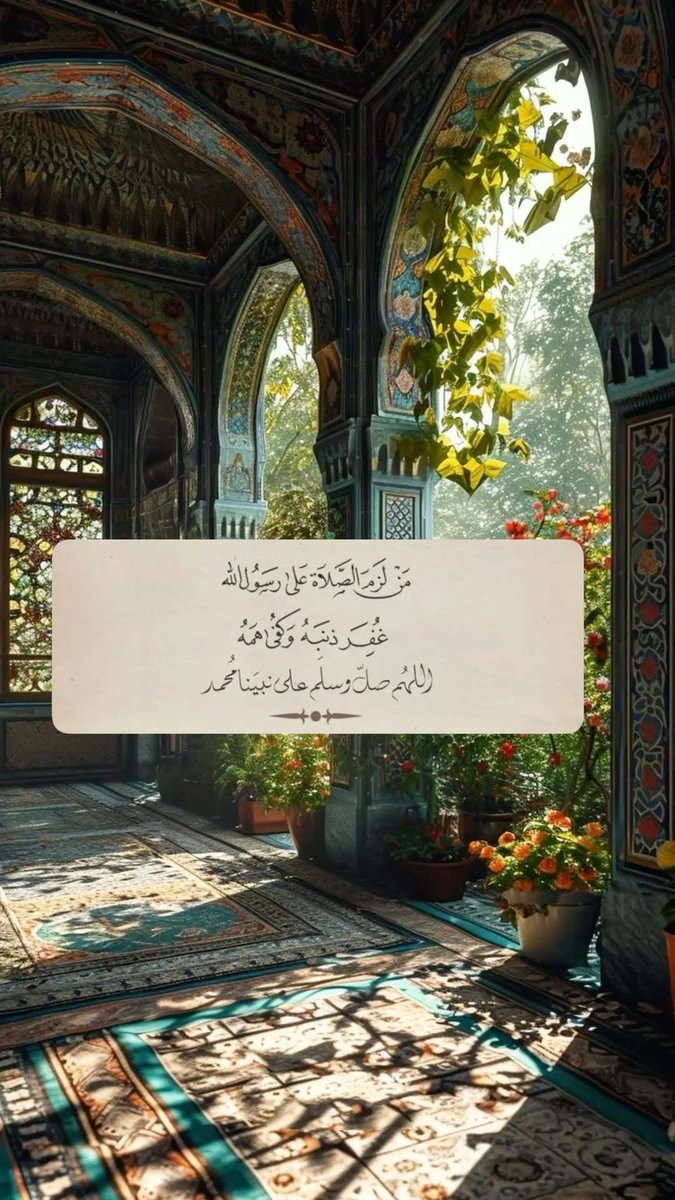 مَنْ لَزِمَ الصَّلَاةَ عَلَى رَسُولِ الله
غُفِرَ ذَنبَهُ وَكُفِىَ هَمَهُ
اللهُم صلِّ وسلم على نبينا مُحمد